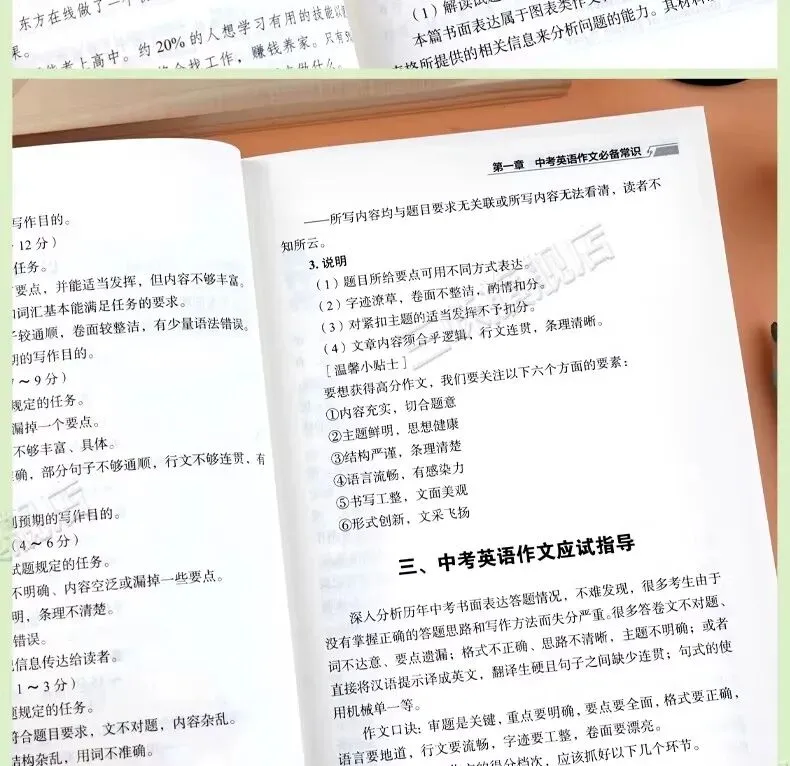 东方在线做了一个
果。
考上高中。约20%的人想学习有用的技能以便
找工作，赚钱养家。只有5%
做什么。
（1）解读试题
本篇书面表达属于图表类作文
所提供的相关信息来分析问题的能力。其材料
写作目的。
12分）
任务。
要点，并能适当发挥，但内容不够丰富。
词汇基本能满足任务的要求。
较通顺，卷面较整洁，有少量语法错误。
期的写作目的。
7～9分）
规定的任务。
漏掉一个要点。
不够丰富、具体。
确，部分句子不够通顺，行文不够连贯，有
到预期的写作目的。
（4～6分）
试题规定的任务。
不明确、内容空泛或漏掉一些要点。
明，条理不清楚。
错误。
信息传达给读者。
1～3分）
题规定的任务。
符合题目要求，文不对题，内容杂乱。
结构杂乱，用词不准确。
第一章 中考英语作文必备常识
——所写内容均与题目要求无关联或所写内容无法看清，读者不
知所云。
3.说明
（1）题目所给要点可用不同方式表达。
（2）字迹潦草，卷面不整洁，酌情扣分。
（3）对紧扣主题的适当发挥不予扣分。
（4）文章内容须合乎逻辑，行文连贯，条理清晰。
[温馨小贴士]
要想获得高分作文，我们要关注以下六个方面的要素：
①内容充实，切合题意
②主题鲜明，思想健康
③结构严谨，条理清楚
④语言流畅，有感染力
⑤书写工整，文面美观
⑥形式创新，文采飞扬
三、中考英语作文应试指导
深入分析历年中考书面表达答题情况，不难发现，很多考生由于
没有掌握正确的答题思路和写作方法而失分严重。很多答卷文不对题、
词不达意、要点遗漏；格式不正确、思路不清晰，主题不明确；或者
直接将汉语提示译成英文，翻译生硬且句子之间缺少连贯；句式的使
用机械单一等。
作文口诀：审题是关键，重点要明确，要点要全面，格式要正确，
语言要地道，行文要流畅，字迹要工整，卷面要漂亮。
的得分档次，应该抓好以下几个环节。
旗舰店